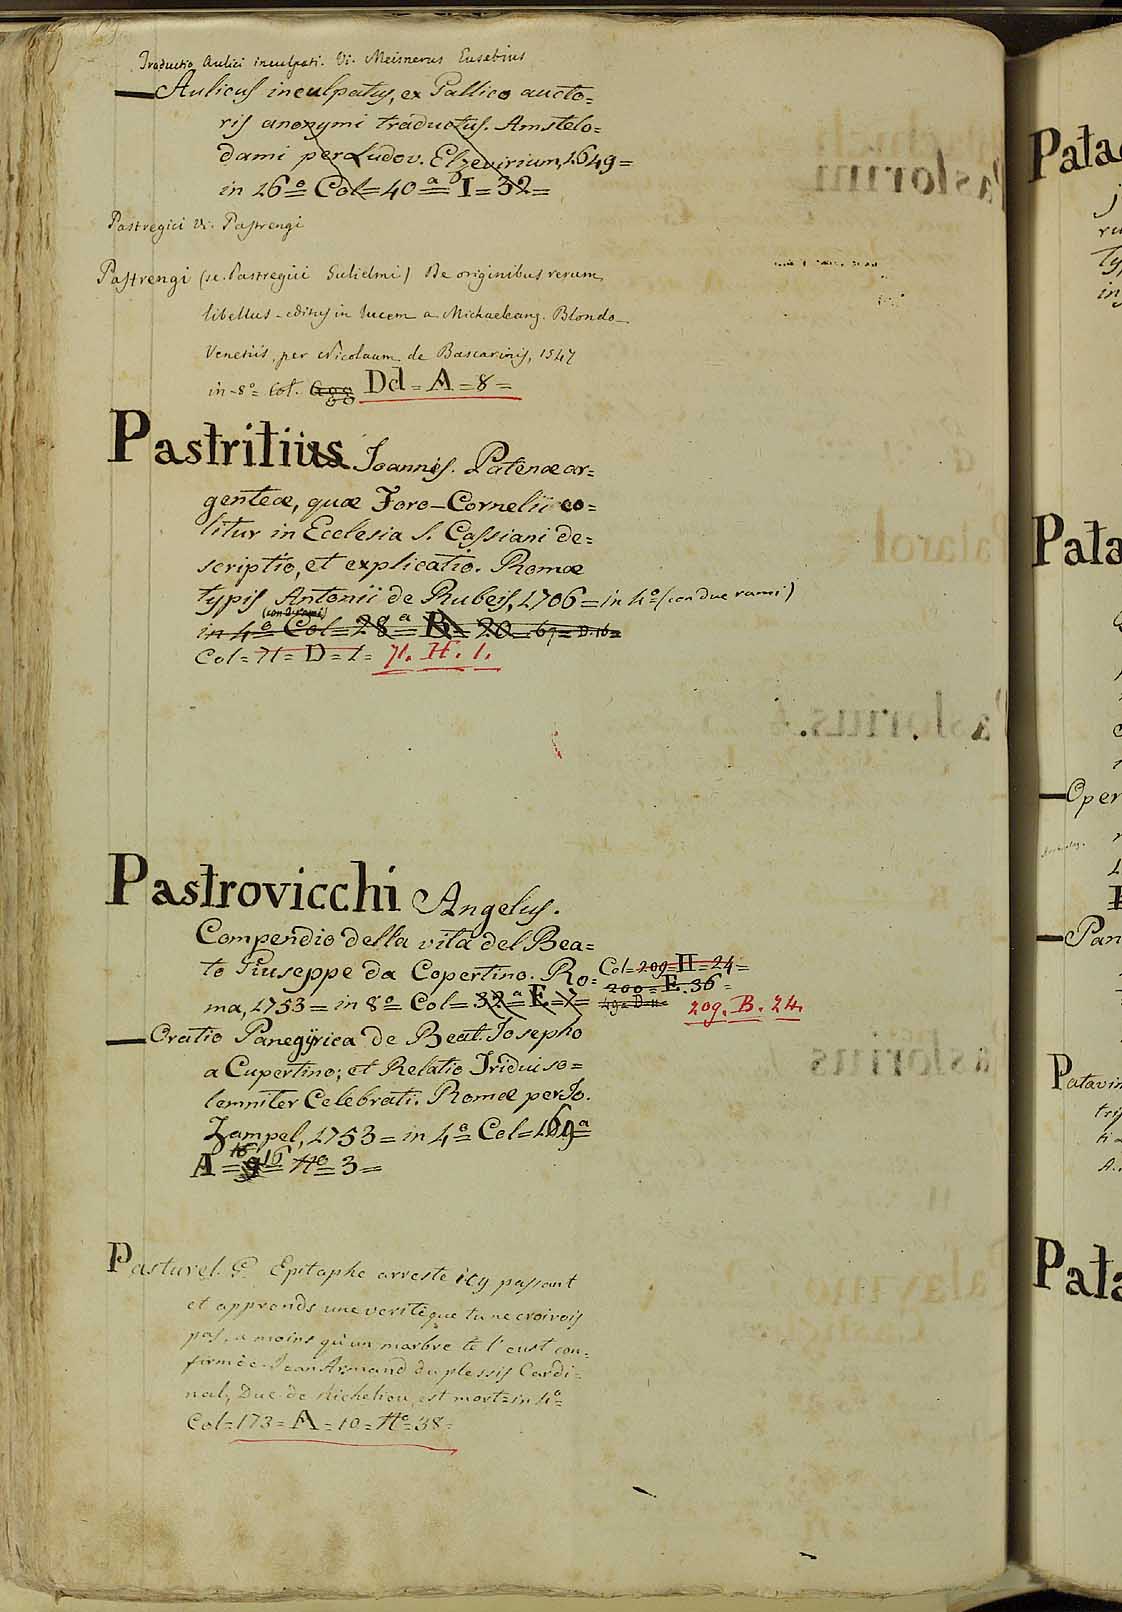 Traductio Aulici inculpati. Vi. Meisnerus Eusebius
— Aulicus inculpatus, ex Gallico aucto=
ris anonymi traductus. Amstelo=
dami per Ludov. Elzevirium, 1649=
in 16º= Col=40ª= I=32=
Pastregici Vi. Pastrengi
Pastrengi (se. Pastregici Gulielmi) De originibus rerum
libellus editus in lucem a Michaeleang. Blondo
Venetiis, per Nicolaum de Bascarinis, 1547
in-8º= Col. Dd=A=8=
Pastritius Joannis. Patenæ ar=
genteæ, quæ Foro-Cornelii co=
litur in Ecclesia S. Cassiani de=
scriptio, et explicatio. Romæ
typis Antonii de Rubeis, 1706=in 4º=(con due rami)
(con 2 rami)
in 4º= Col=28ª=B=20= 69=D.16=
Col=71=D=1= 71. H. 1.
Pastrovicchi Angelus.
Compendio della vita del Bea=
to Giuseppe da Copertino. Ro=
ma, 1753= in 8º= Col=32ª=E=7=
Col=209=H=24=
200=E.36=
49=D.11=
209. B. 24.
— Oratio Panegÿrica de Beat. Josepho
a Cupertino; et Relatio Tridui so=
lemniter Celebrati. Romæ per Jo.
Zampel, 1753= in 4º= Col=169ª=
A= 16 Nº=3=
Pasturel. G. Epitaphe arreste icy passant
et apprends une veritè que tu ne croirois
pas, a moins qu'un marbre te l'eust con=
firmèe. Jean Armand du plessis Cardi=
nal, Duc de Richelieu, est mort=in 4º=
Col=173=A=10=Nº=38=
Pata
Pata
— Oper
— Pan
Patavin
Pata